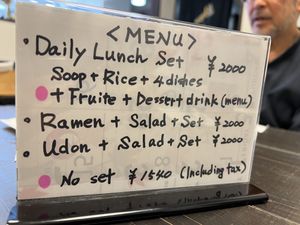 <MENU>
・Daily Lunch Set ¥2000
Soop + Rice + 4 dishes
+ Fruite + Dessert drink (menu)
・Ramen + Salad + Set ¥2000
・Udon + Salad + Set ¥2000
No set ¥1540 (Including tax)